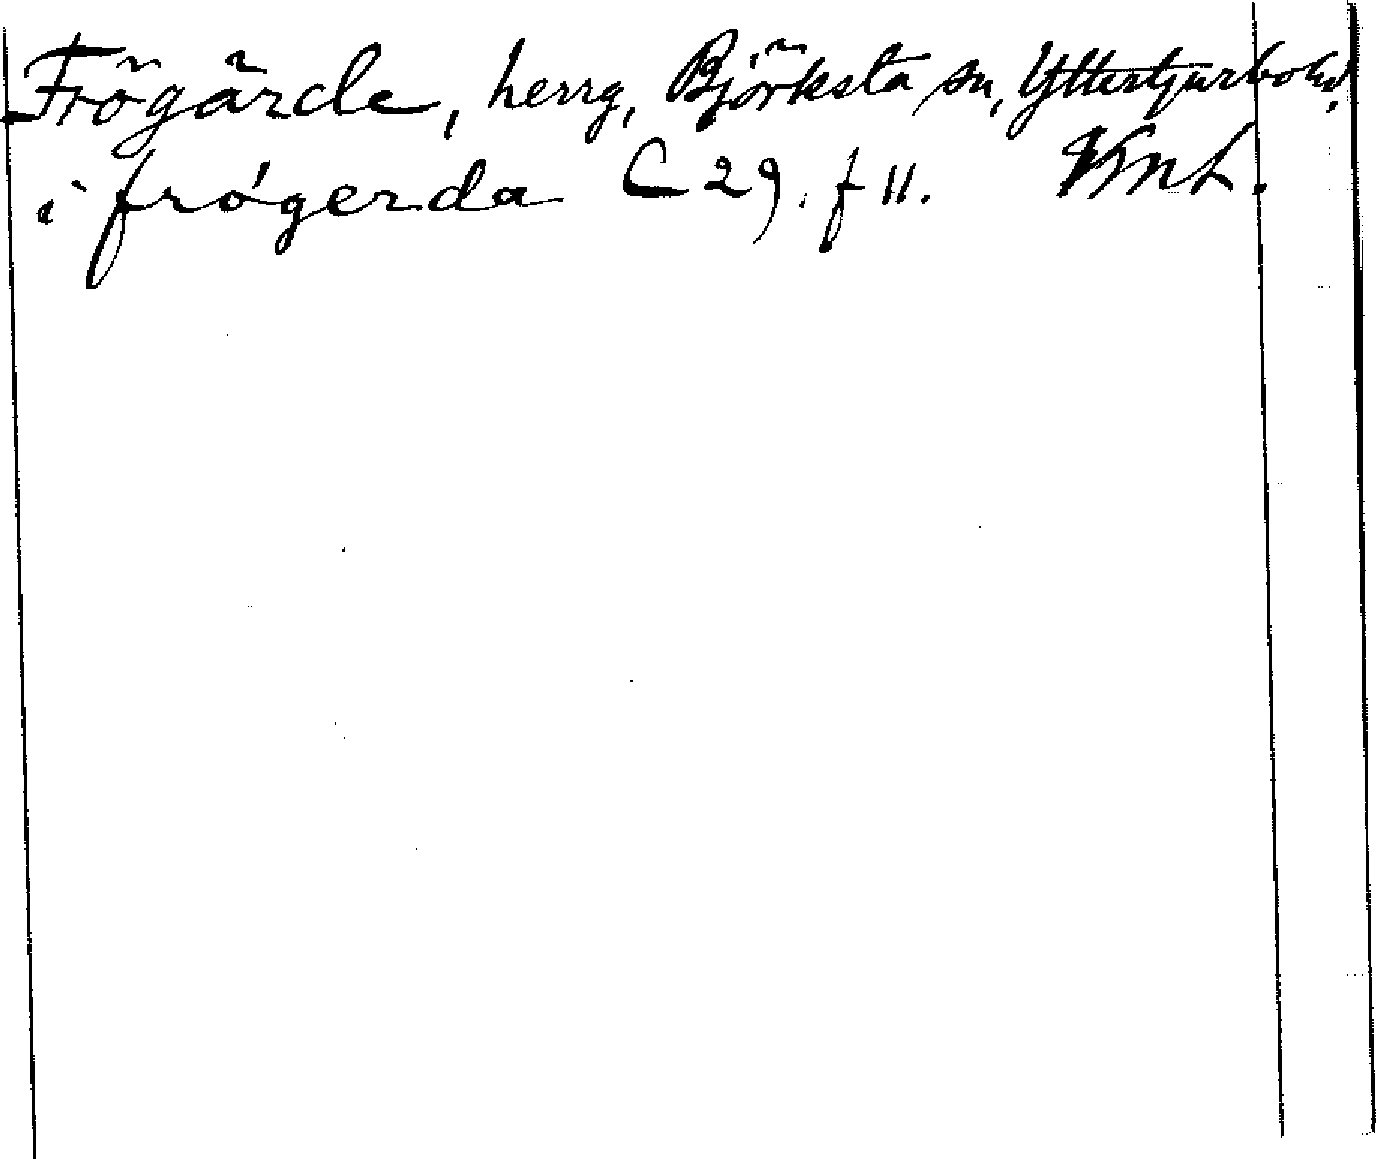 Frögärde, herrg, Björksta sn, Yttertjurbo hd,
i frögerda C 29. f 11. Vml.